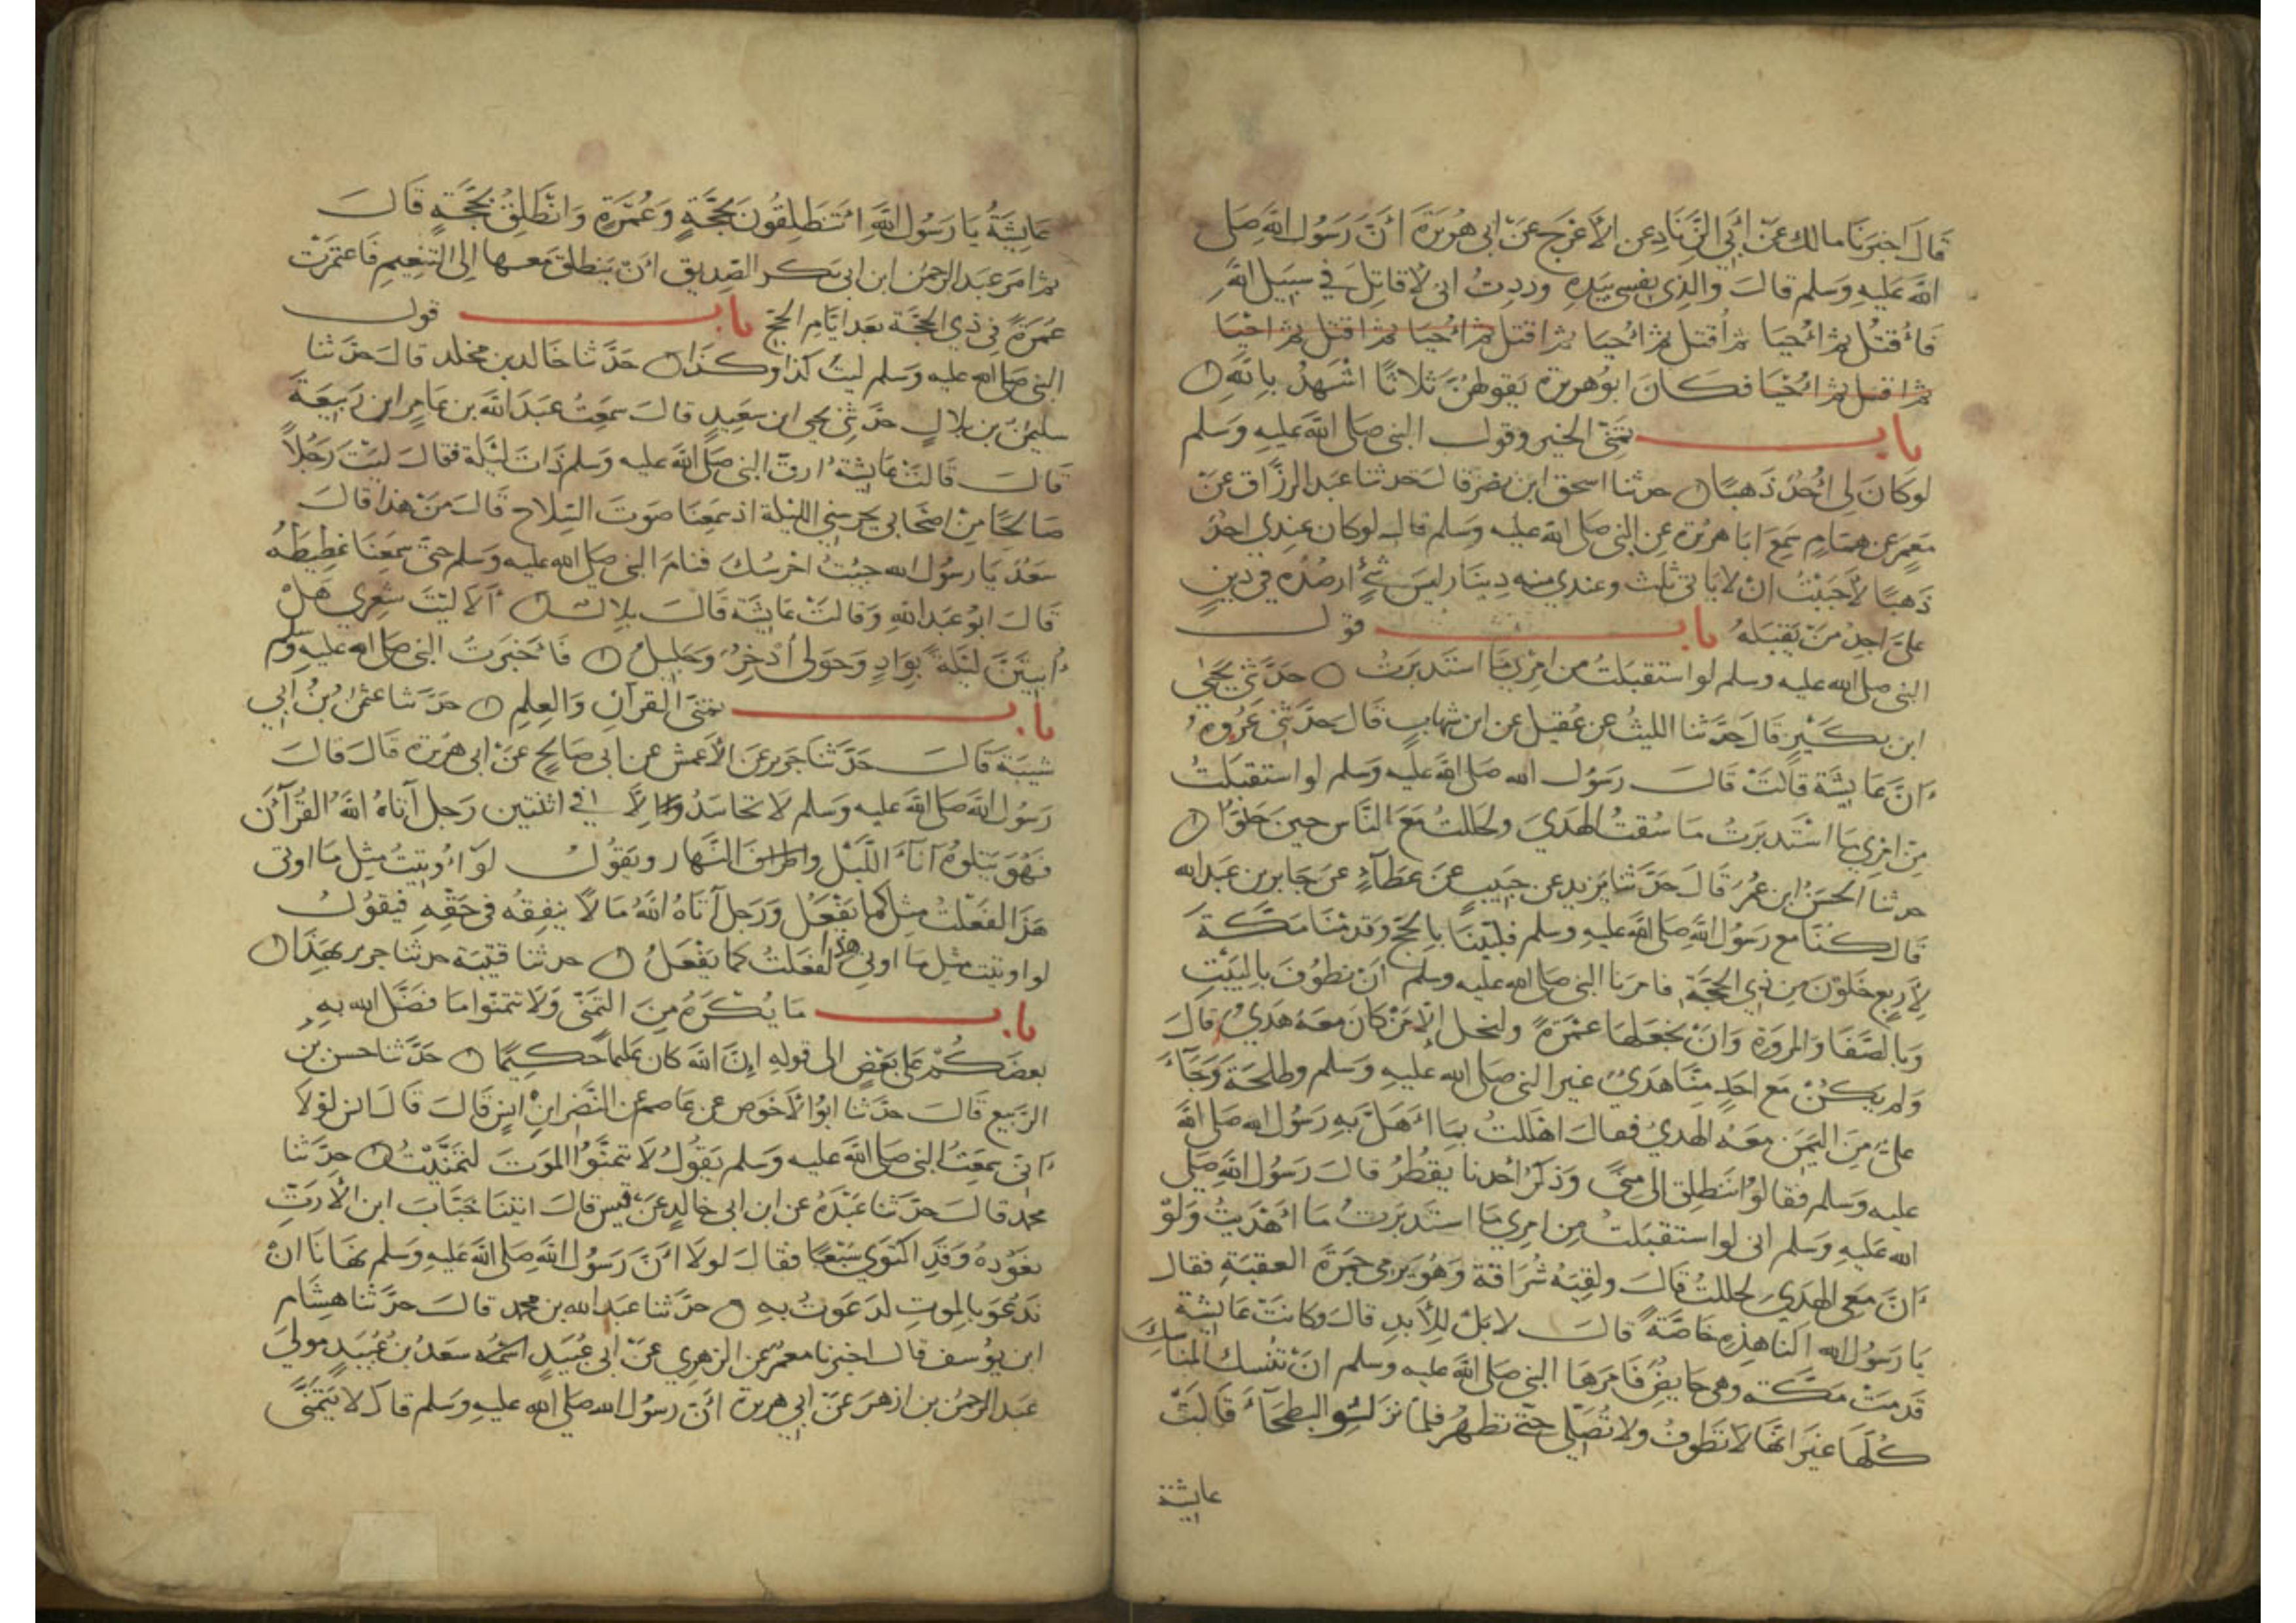 قَالَ اخبَرَنَا مالك عَنْ أَبِي الزِّنَادِ عن الأَعْرَجِ عَنْ ابى هُرَيْرَةَ أَنَّ رَسُولَ اللهِ صَلى
اللهُ عَلَيهِ وَسَلم قالَ والذِى نفسي بيَدِهِ وددِتُ انى لأقاتِلَ في سَبيلِ اللهِ
فَأُقتَلُ ثم أُحيَا ثم أُقتل ثم أُحيا ثم اقتل ثم أُحيَا ثم اقتل ثم احْيَا
ثم اقتل ثم أُحْيَا فكَانَ ابوُهريرة يَقولهُنَّ ثلاثًا اشْهَدُ بِاللهِ
باب تمَنِّى الخير وقول النبى صَلى اللهُ عَليهِ وَسَلم
لَوكَانَ لى أُحُدٌ ذَهبًا حدثنا اسحق ابن نصْر قالَ حَدثنا عَبد الرزَّاق عَنْ
مَعمَر عَن همَامٍ سَمِعَ ابَا هريْرة عنِ النبى صَلى الله عليه وَسَلم قال لوكان عِندِي احُدٌ
ذَهَبًا لأَحبَبْتُ انْ لايَأتى ثلث وعندي منِه دِينَار ليسَ شئٌ ارصُدُه في دَينٍ
علَيَّ اجِدُ مَنْ يَقبَلهُ باب قول
النبى صلى الله عليه وسلم لو استقبَلتُ من امرِي مَا استَدبَرتُ حَدَّثنى يَحيَى
ابن بكَيْرٍ قَالَ حَدَّثنا الليثُ عن عُقيل عن ابن شهَابٍ قَالَ حَدَّثنى عُروة
انَّ عَايشَةَ قالَتْ قالَ رَسُول الله صَلى الله عَليه وَسَلم لو استقبَلتُ
مِن امرِي مَا اسْتَدبَرتُ مَا سُقتُ الهَديَ ولحَللتُ مَعَ النَّاس حِينَ حَلوّا
حدثنا الحسَنُ ابن عُمرَ قَالَ حَدَّثنا يَزيد عن حَبيبٍ عَنْ عَطَآءٍ عَن جَابِر بن عَبدالله
قَالَ كُنَّا مع رَسُولِ اللَّهِ صَلى الله عَليهِ وسلم فلَبَّينَا بِالحَجّ وَقَدمْنَا مَكَّةَ
لأَربعٍ خَلَوْنَ مِن ذِي الحجَّةِ فامرَنَا النبى صلى الله عليه وسلم أن نطوُفَ بِالبَيْتِ
وَبالصَّفَا وَالمروَة وَانْ نجعَلهَا عمْرَةً ولنحل إلا مَنْ كان مَعَهُ هَديٌ قالَ
وَلم يكُنْ مَع احَدٍ مِنَّا هَديٌ غير النبى صَلى الله عليهِ وَسَلم وطلحَةَ وَجَآءَ
علىٌّ مِنَ اليَمَن مَعَهُ الهديُ فقالَ اهْللتُ بمَا أَهَلَّ بِهِ رَسُولُ الله صَلى الله
عليه وَسلم فقالوُا انَنطلِق الى مِنًى وَذَكَرُ أحدنا يقطُرُ قالَ رَسُول اللهِ صَلى
الله عَليهِ وَسَلم انى لو استقبَلتُ مِن امرِي مَا استَدبَرتُ مَا أَهْدَيْتُ وَلَوْ
انَّ معى الهَديَ لحللتُ قَالَ ولقيَهُ سُرَاقة وَهُوَ يَرمى جَمرَةَ العقبَةِ فقال
يَا رَسُولَ الله النا هَذِهِ خَاصَّةً قالَ لا بَلْ لِلأَبدِ قالَ وكانتْ عَايشَة
قَدمَتْ مَكَّة وهي حَايِضٌ فَامَرَهَا النبى صَلى الله عليه وسلم انْ تنْسكَ المنَاسِكَ
كُلّهَا غيرَ انّهَا لاتَطوفُ ولا تُصَلى حتى تطهُرَ فلمّا نزلوا البطحَآءَ قَالَتْ
عايشة
عَايشَةُ يَا رَسُولَ اللهِ أَتنطَلِقُونَ بحَجَّةٍ وَعُمْرَةٍ وَانْطَلِقُ بحَجَّةٍ قَالَ
ثم امَرَ عَبد الرحمَن ابن ابى بَكر الصِّديق أَنْ ينطلقَ مَعها إلى التنعِيم فَاعتمَرَتْ
عُمرَةً في ذي الحجَّة بَعد ايَّامِ الحجّ باب قول
النبى صَلى الله عليه وَسلم ليتَ كذا وكَذَا حَدَّثنا خَالد بن مخلد قالَ حَدَّثنا
سليمٰن بن بلالٍ حَدَّثنِى يحيى ابن سَعِيدٍ قالَ سمَعِتُ عبَدَ اللهِ بن عَامِرٍ ابن رَبيعَةَ
قَالَ قَالَتْ عَايشَةُ ارقَ النبى صَلى الله عليه وَسَلم ذَاتَ ليْلَة فقالَ ليْتَ رَجُلاً
صَالحًا مِنْ اصحَابي يحرسني الليلة اذ سَمعِنَا صَوتَ السِلَاح قَالَ مَنْ هذا قالَ
سَعْدٌ يَا رسُولَ الله جئتُ احرُسُكَ فنامَ النبى صَلى الله عليه وَسَلم حتى سمِعَنَا غَطِيطَهُ
قَالَ ابوُ عَبد اللهِ وَقالتْ عَايشَة قَالَ بِلالٌ أَلَا ليْتَ شِعرِي هَلْ
أَبيتَنَّ لَيْلَةً بِوَادٍ وَحَولى أذْخِرٌ وَجَليلُ فَأَخبَرتُ النبى صَلى الله عليهِ وسَلم
باب تمنَّى القُرآنِ وَالعِلمِ حَدَّثنا عثمٰن بنُ أبى
شيبَةَ قَالَ حَدَّثنَا جَرير عَن الأعمش عن ابى صَالحٍ عَنْ ابى هُرَيرة قَالَ قالَ
رَسُولُ اللهِ صَلى الله عليه وَسَلم لا تحاسَدُ إلَّا فى اثنتين رَجل آتاهُ اللهُ القُرْآنَ
فهُوَ يَتلوُهُ آنآءَ اللَّيْل والنّهار ويَقوُلُ لَوْ أُوتيتُ مِثل مَا اوتى
هَذَا لفَعَلْتُ مثِل كما يَفعَلُ وَرَجل آتاهُ اللهُ مَالاً ينفِقُه فى حَقّهِ فيقوُلُ
لو اوتيت مثِل مَا اوتي هذا لفعَلتُ كما يَفْعَلُ حدثنا قتيْبَة حدثنا جرير بهَذَا
باب مَا يُكرَهُ مِنَ التمَنِّى وَلَا تتمنّوا مَا فَضَّلَ الله بِهِ
بعضَكُمْ عَلى بَعْضٍ الى قوله إنّ اللهَ كانَ عَليمًا حَكِيمًا حَدَّثنا حسن بن
الرَّبيع قَالَ حدّثَنا ابوُ الأَحْوَص عن عَاصم عن النَّضر ابنِ انسٍ قَالَ قَالَ انس لوْلا
انّى سمِعَتُ النبى صَلى الله عليه وَسلم يَقوُلُ لَا تتمنَّوُا الموَتَ لتمنَّيتُ حدَّثنا
محمد قالَ حَدَّثنا عَبْدَة عن ابن ابى خالِدٍ عَنْ قيس قالَ اتيْنَا خَبَّابَ ابن الأرَتّ
نعَوُدهُ وَقَدِ اكتَوَى سَبْعًا فقَالَ لولَا أَنَّ رَسُولَ اللهِ صَلى الله عَليهِ وَسَلم نهَانَا انْ
نَدعُوَ بالموتِ لدَعَوتُ بهِ حدَّثنا عَبد الله بن محمد قالَ حدَّثنا هِشَام
ابن يوُسف قالَ اخبرنا معمر عن الزهري عَنْ ابى عُبَيدٍ اسمُه سَعدُ بنُ عُبَيدٍ مولىَ
عَبد الرحمن بن ازهَرَ عَنْ ابى هريرة أَنّ رسوُلَ الله صَلى الله عليه وَسَلم قالَ لا يتَمَنَّى